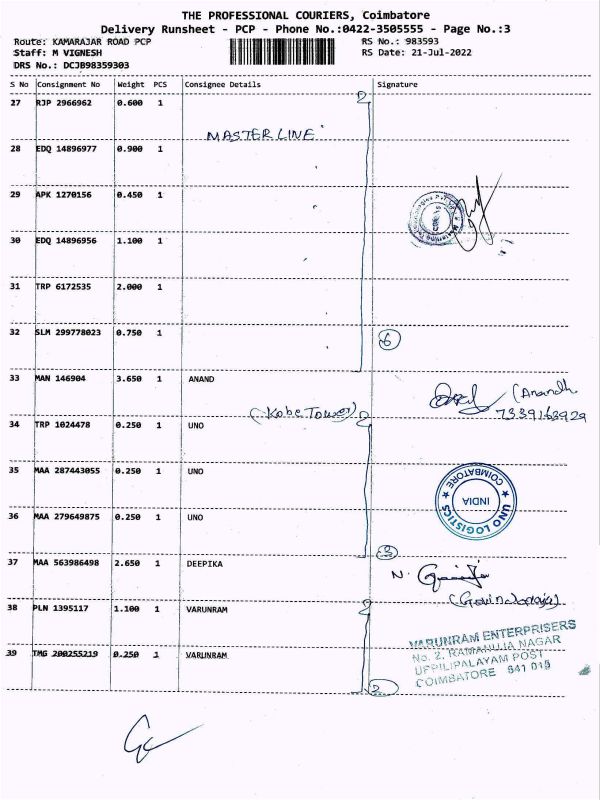 THE PROFESSIONAL COURIERS, Coimbatore
Delivery Runsheet - PCP - Phone No.:0422-3505555 - Page No.:3
Route: KAMARAJAR ROAD PCP RS No.: 983593
Staff: M VIGNESH RS Date: 21-Jul-2022
DRS No.: DCJB98359303
S No Consignment No Weight PCS Consignee Details Signature
27 RJP 2966962 0.600 1
MASTER LINE
28 EDQ 14896977 0.900 1
29 APK 1270156 0.450 1
30 EDQ 14896956 1.100 1
31 TRP 6172535 2.000 1
32 SLM 299778023 0.750 1
6
33 MAN 146904 3.650 1 ANAND
(Anandh
(Kobe Tower) 7339163929
34 TRP 1024478 0.250 1 UNO
35 MAA 287443055 0.250 1 UNO
COIMBATORE
INDIA
UNO LOGISTICS
36 MAA 279649875 0.250 1 UNO
37 MAA 563986498 2.650 1 DEEPIKA
38 PLN 1395117 1.100 1 VARUNRAM
VARUNRAM ENTERPRISERS
No. 2, RAMANUJA NAGAR
39 TMG 200255219 0.250 1 VARUNRAM
UPPILIPALAYAM POST
COIMBATORE 641 015
2